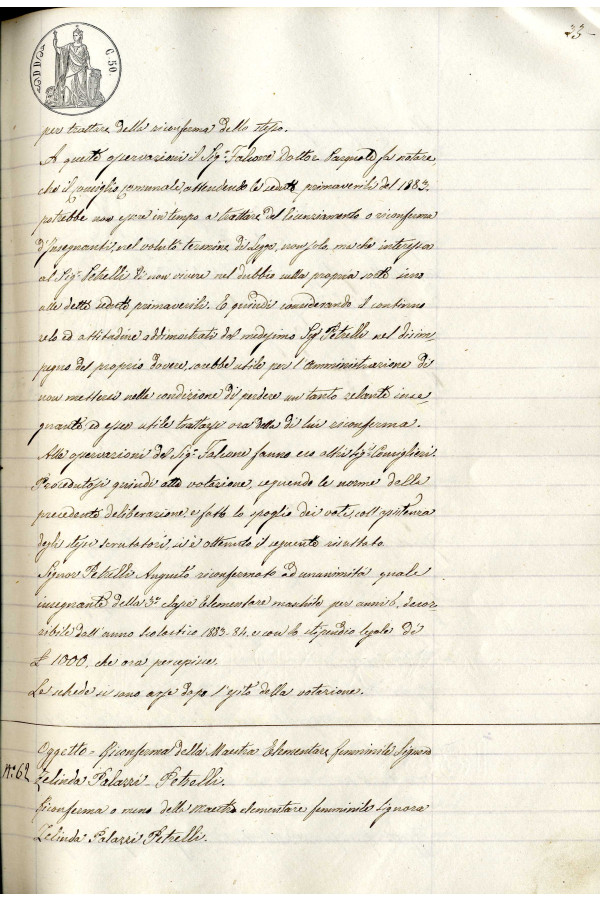 23
C. 50.
per trattare della riconferma dello stesso.
A queste osservazioni il Sig.r Falcone Dottor Pasquale fa notare
che il Consiglio Comunale, attendendo la seduta primaverile del 1883,
potrebbe non essere in tempo a trattare del licenziamento o riconferma
d'Insegnanti, nel voluto termine di Legge, non solo, ma che interessa
al Sig.r Petrelli di non vivere nel dubbio sulla propria sorte sino
alla detta seduta primaverile. E quindi considerando il continuo
zelo ed attitudine addimostrati dal medesimo Sig. Petrelli nel disim=
pegno del proprio dovere, sarebbe utile per l'Amministrazione di
non mettersi nella condizione di perdere un tanto zelante inse=
gnante, ed esser utile trattarsi ora della di lui riconferma.
Alle osservazioni del Sig.r Falcone fanno eco altri Sig.ri Consiglieri.
Procedutosi quindi alla votazione, seguendo le norme della
precedente deliberazione, e fatto lo spoglio dei voti, coll'assistenza
degli stessi scrutatori, si è ottenuto il seguente risultato.
Signor Petrelli Augusto riconfermato ad unanimità quale
insegnante della 3.a classe Elementare maschile per anni 6, decor=
ribile dall'anno scolastico 1883-84, e con lo stipendio legale di
£ 1000, che ora percepisce.
Le schede si sono arse dopo l'esito della votazione.
N.o 62
Oggetto - Riconferma della Maestra Elementare femminile Signora
Zelinda Palazzi - Petrelli.
Riconferma o meno della Maestra elementare femminile Signora
Zelinda Palazzi Petrelli.